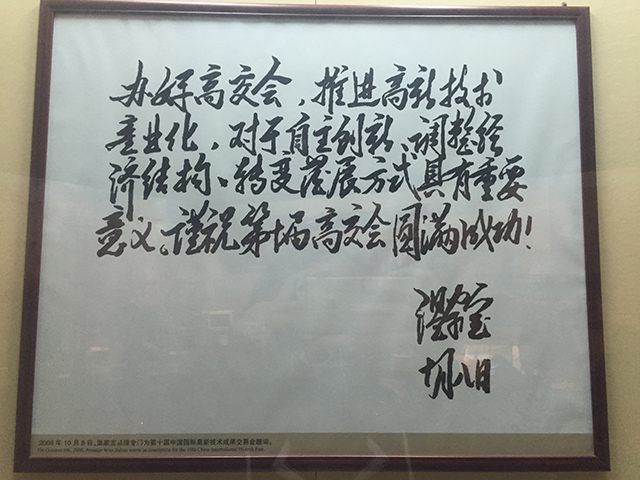 办好高交会，推进高新技术
产业化，对于自主创新、调整经
济结构、转变发展方式具有重要
意义。谨祝第十届高交会圆满成功！
温家宝
十月八日
2008年10月8日，温家宝总理专门为第十届中国国际高新技术成果交易会题词。
On October 8th, 2008, Premier Wen Jiabao wrote an inscription for the 10th China International Hi-tech Fair.